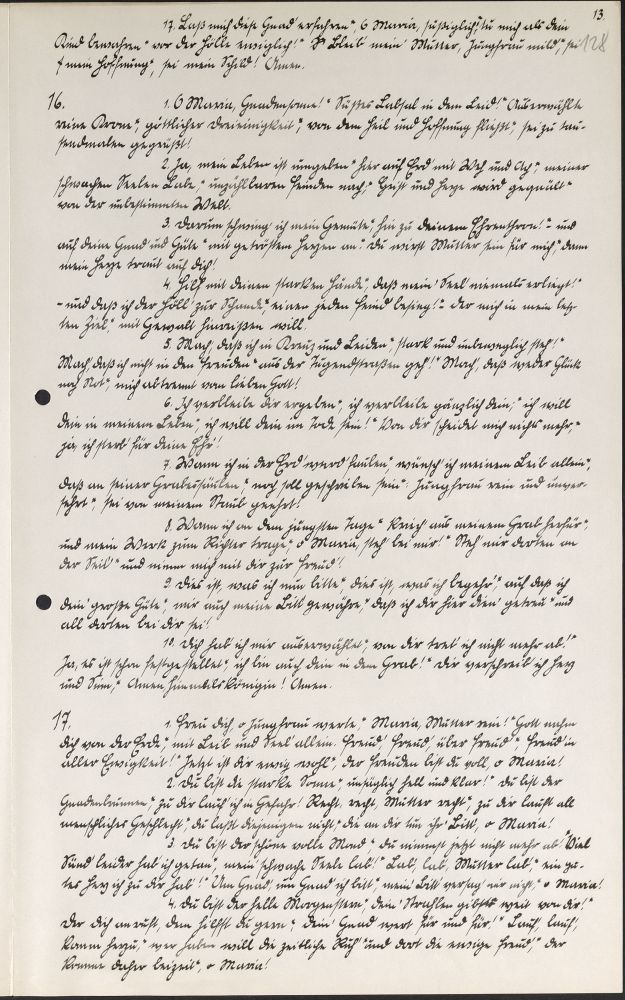 13.
128
17. Laß mich diese Gnad' erfahren", O Maria, süßiglich! tu mich als dein
Kind bewahren" vor der Hölle ewiglich!" Bleib mein' Mutter, Jungfrau mild", sei
mein Hoffnung", sei mein Schild! Amen.
16. 1. O Maria, Gnadensonne!" Süßes Labsal in dem Leid!" Auserwählte
reine Krone", göttlicher Dreieinigkeit", von dem Heil und Hoffnung fließt", sei zu tau-
sendmalen gegrüßt!
2. Ja, mein Leben ist umgeben" hier auf Erd' mit Weh und Ach", meiner
schwachen Seelen Labe", unzählbaren Feinden nach", Geist und Herze wird gequält"
von der unbestimmten Welt.
3. Darum schwing' ich mein Gemüte", hin zu deinem Ehrenthron!" und
auf deine Gnad' und Güte" mit getröstem Herzen an." Du wirst Mutter sein für mich", dann
mein Herze traut auf dich!
4. Hilf mit deinen starken Hände", daß mein' Seel' niemals erliegt!"
- und daß ich der Höll' zur Schande", einen jeden Feind besieg!" der mich in mein letz-
ten Ziel", mit Gewalt hinreißen will.
5. Mach', daß ich in Kreuz und Leiden", stark und unbeweglich steh'!"
Mach', daß ich nicht in den Freuden" aus der Tugendstraßen geh'!" Mach', daß weder Glück
noch Not", mich abtrennt vom lieben Gott!
6. Ich verbleibe dir ergeben", ich verbleibe gänzlich dein;" ich will
dein in meinem Leben", ich will dein im Tode sein!" Von dir scheidet mich nichts mehr,"
ja, ich sterb' für deine Ehr'!
7. Wann ich in der Erd' werd' faulen", wünsch' ich meinem Leib allein",
daß an seiner Grabessäulen", noch soll geschrieben sein: Jungfrau rein und unver-
sehrt", sei von meinem Staub geehrt!
8. Wann ich an dem jüngsten Tage" kriech' aus meinem Grab herfür",
und mein Werk zum Richter trage", o Maria, steh' bei mir!" Steh' mir dorten an
der Seit'" und nimm mich mit dir zur Freud'!
9. Dies ist, was ich nun bitte" dies ist, was ich begehr'", auf daß ich
dein' große Güte", mir auch meine Bitt' gewähre", daß ich dir hier dien' getreu" und
all' dorten bei dir sei!
10. Dich hab' ich mir auserwählet", von dir tret' ich nicht mehr ab!"
Ja, es ist schon festgestellet", ich bin auch dein in dem Grab!" Dir verschreib' ich Herz
und Sinn", Amen Himmelskönigin! Amen.
17. 1. Freu' dich, o Jungfrau werte", Maria, Mutter rein!" Gott nahm
dich von der Erde", mit Leib und Seel' allein. Freud', Freud', über Freud'", Freud' in
aller Ewigkeit!" Jetzt ist dir ewig wohl", der Freuden bist du voll, o Maria!
2. Du bist die starke Sonne", unsäglich hell und klar!" Du bist der
Gnadenbrunnen", zu dir lauf' ich in Gefahr! Recht, recht, Mutter recht", zu dir lauft all
menschliches Geschlecht", du laßt diejenigen nicht", die an dir tun ihr' Bitt', o Maria!
3. Du bist der schöne volle Mond" du nimmst jetzt nicht mehr ab!" Viel
Sünd' leider hab' ich getan", mein' schwache Seele lab'!" Lab', lab', Mutter lab'", ein gu-
tes Herz ich zu dir hab'!" Um Gnad', um Gnad' ich bitt", mein' Bitt' versag' mir nicht", o Maria!
4. Du bist der helle Morgenstern", dein' Strahlen gibst weit von dir!"
Der dich anruft, dem hilfst du gern", dein' Gnad' wert für und für!" Lauf', lauf',
komm herzu", wer haben will die zeitliche Ruh'" und dort die ewige Freud'", der
komme daher beizeit", o Maria!